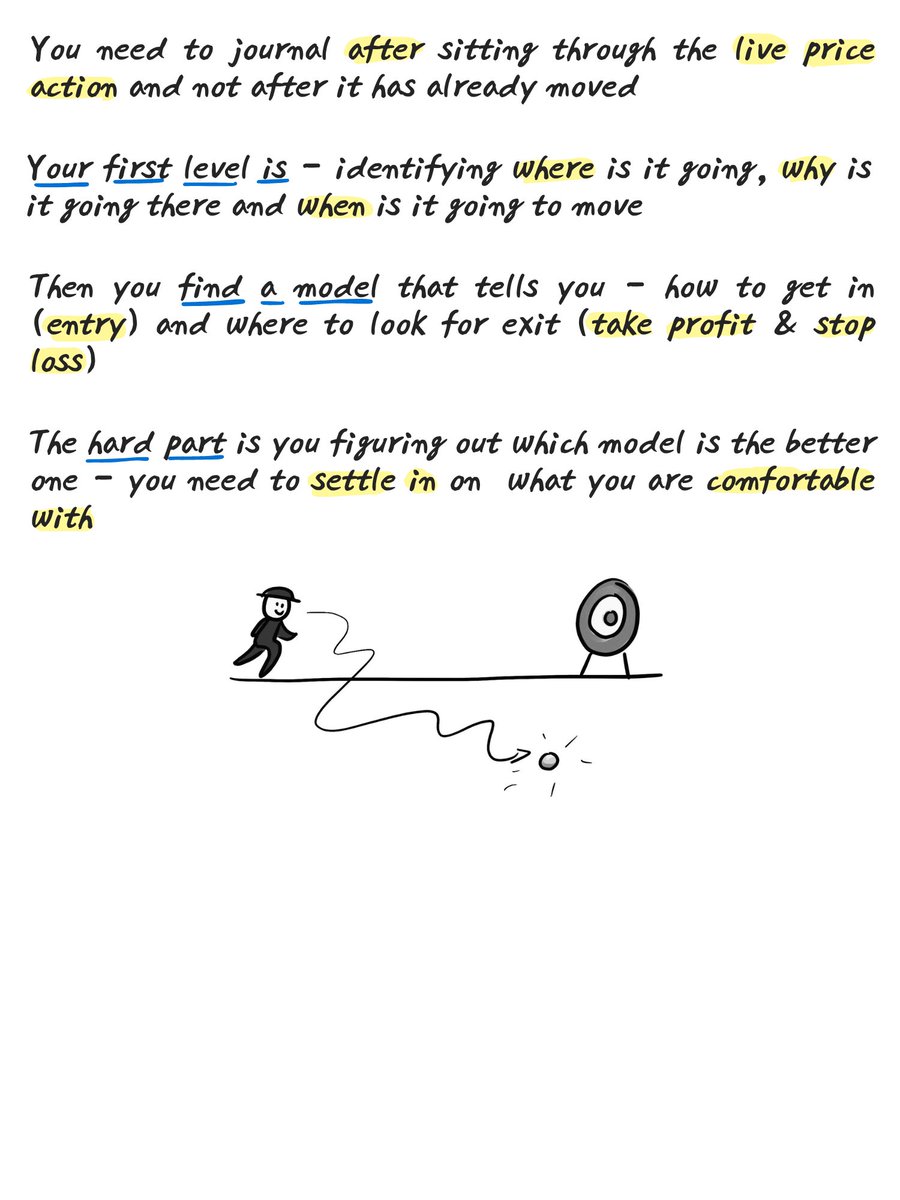 You need to journal after sitting through the live price
action and not after it has already moved
Your first level is - identifying where is it going, why is
it going there and when is it going to move
Then you find a model that tells you - how to get in
(entry) and where to look for exit (take profit & stop
loss)
The hard part is you figuring out which model is the better
one - you need to settle in on what you are comfortable
with